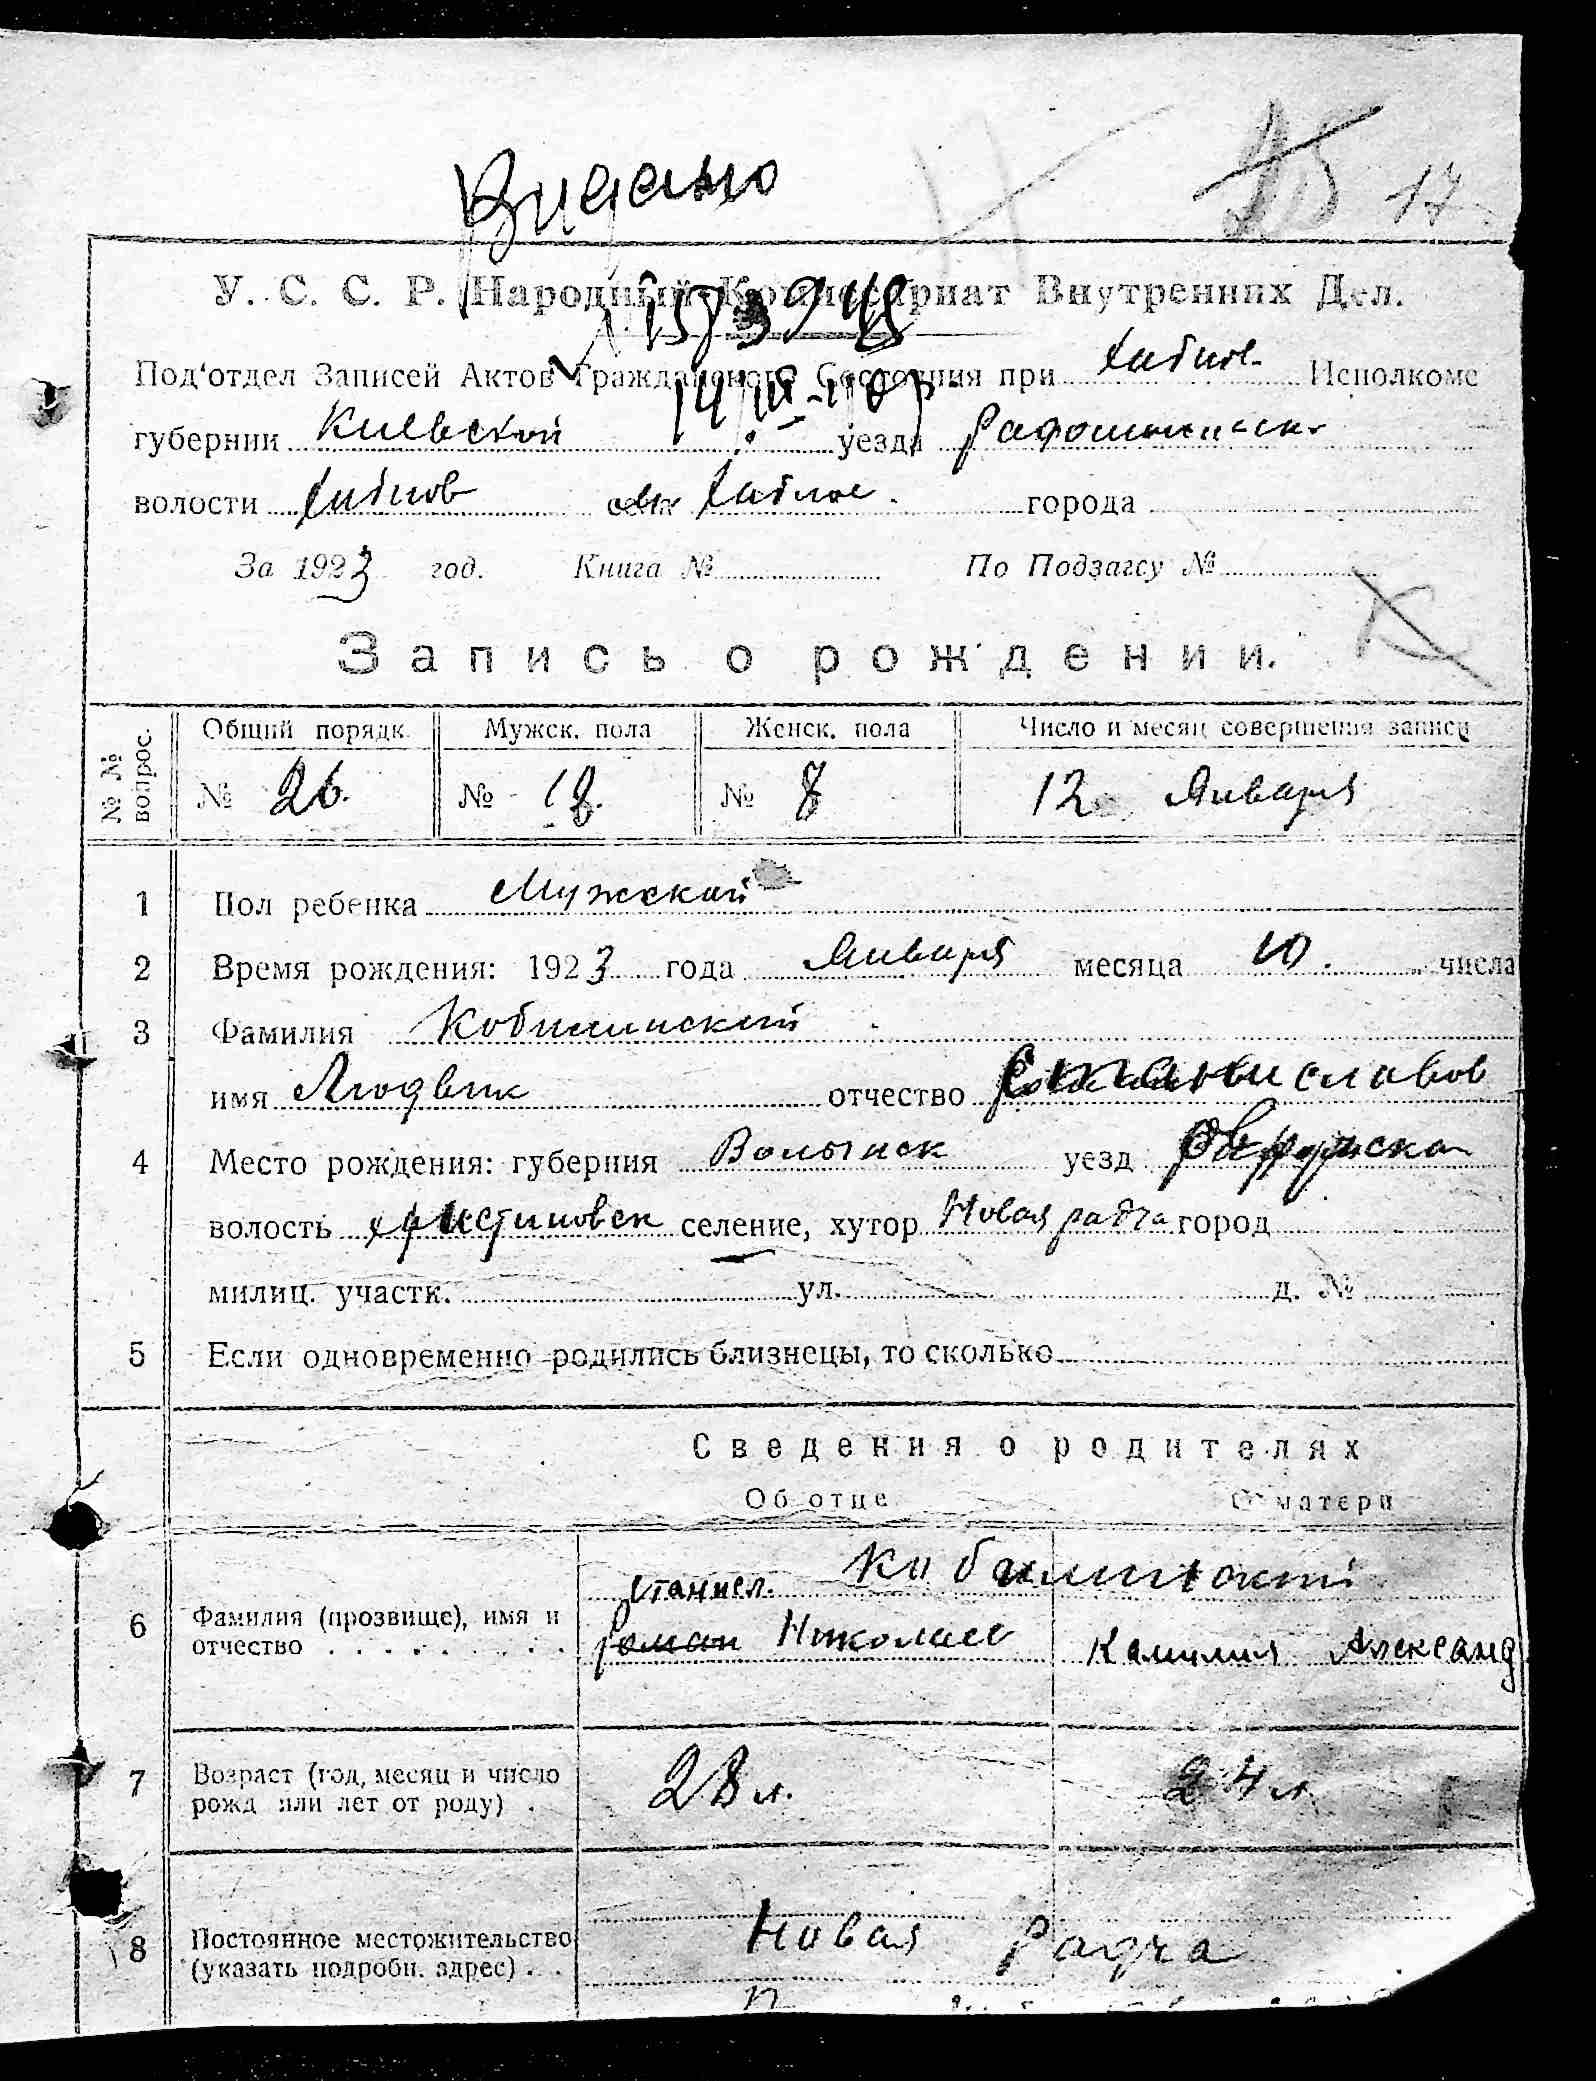 17
Видано
У. С. С. Р. Народный Комиссариат Внутренних Дел.
№ 1573948
Под‘отдел Записей Актов Гражданского Состояния при Хабнов Исполкоме
губернии Киевской уезда Радомысльск
волости Хабнов село Хабное города
За 1923 год. Книга № По Подзагсу №
Запись о рождении.
№ № вопрос. Общий порядк. Мужск. пола Женск. пола Число и месяц совершения записи
№ 26. № 18. № 8 12 Января
1 Пол ребенка Мужский
2 Время рождения: 1923 года Января месяца 10. числа
3 Фамилия Кобылинский
имя Людвик отчество Станиславов
4 Место рождения: губерния Волынск уезд Овручска
волость христиновск селение, хутор Новая радча город
милиц. участк. ул. д. №
5 Если одновременно родились близнецы, то сколько
Сведения о родителях
Об отце О матери
Станисл. Кобылинский
6 Фамилия (прозвище), имя и
отчество Роман Николаев Камилия Александ
7 Возраст (год, месяц и число
рожд или лет от роду) 28 л. 24 л.
8 Постоянное местожительство Новая Радча
(указать подробн. адрес)